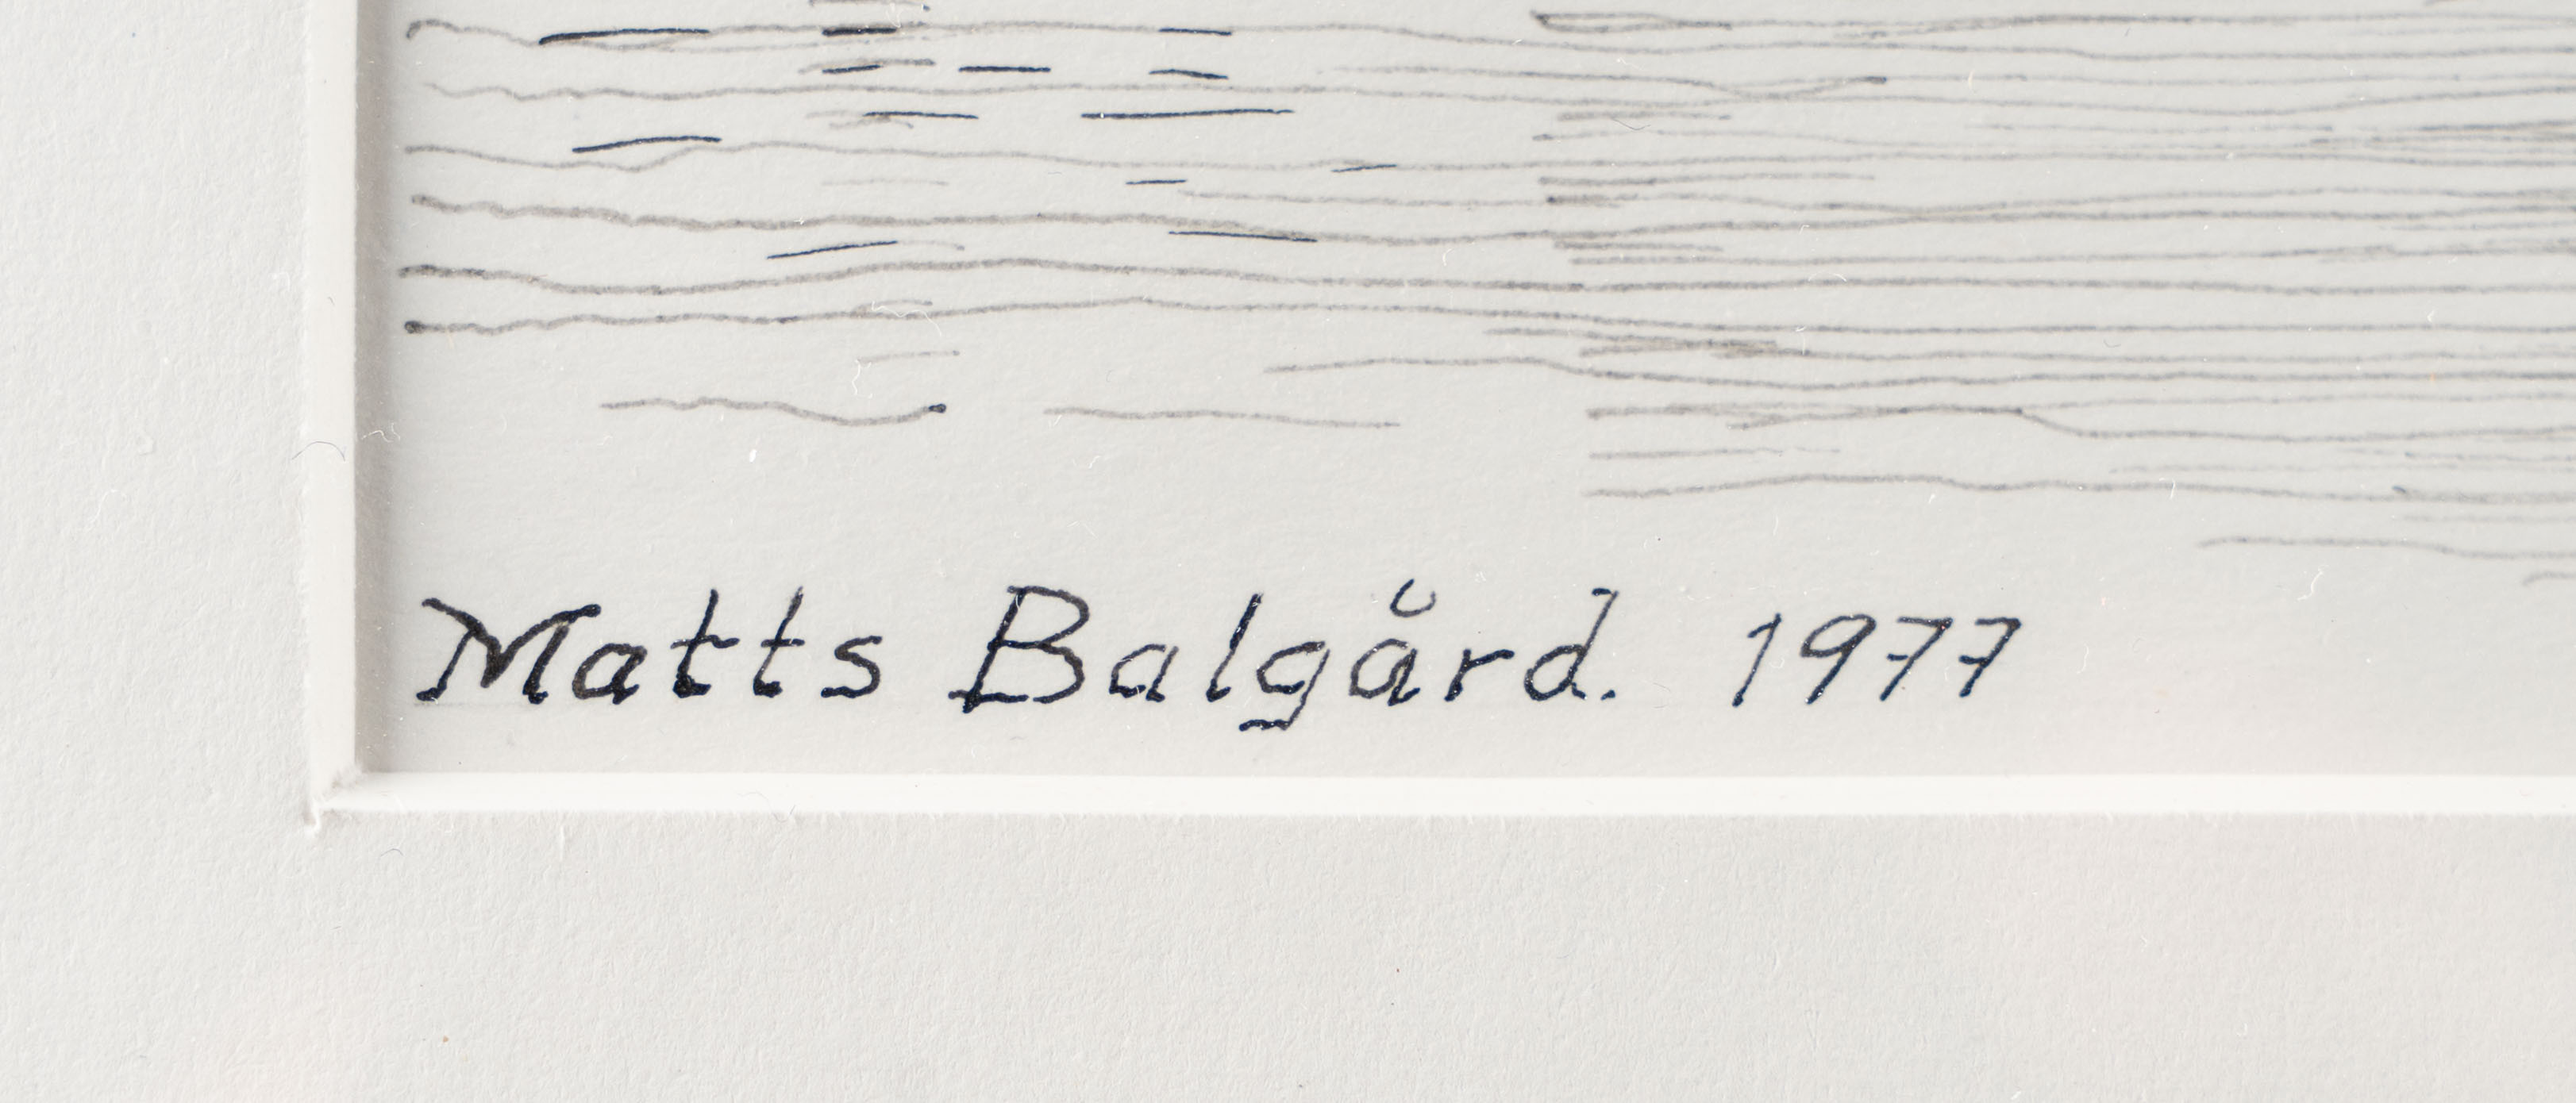 Matts Balgård. 1977